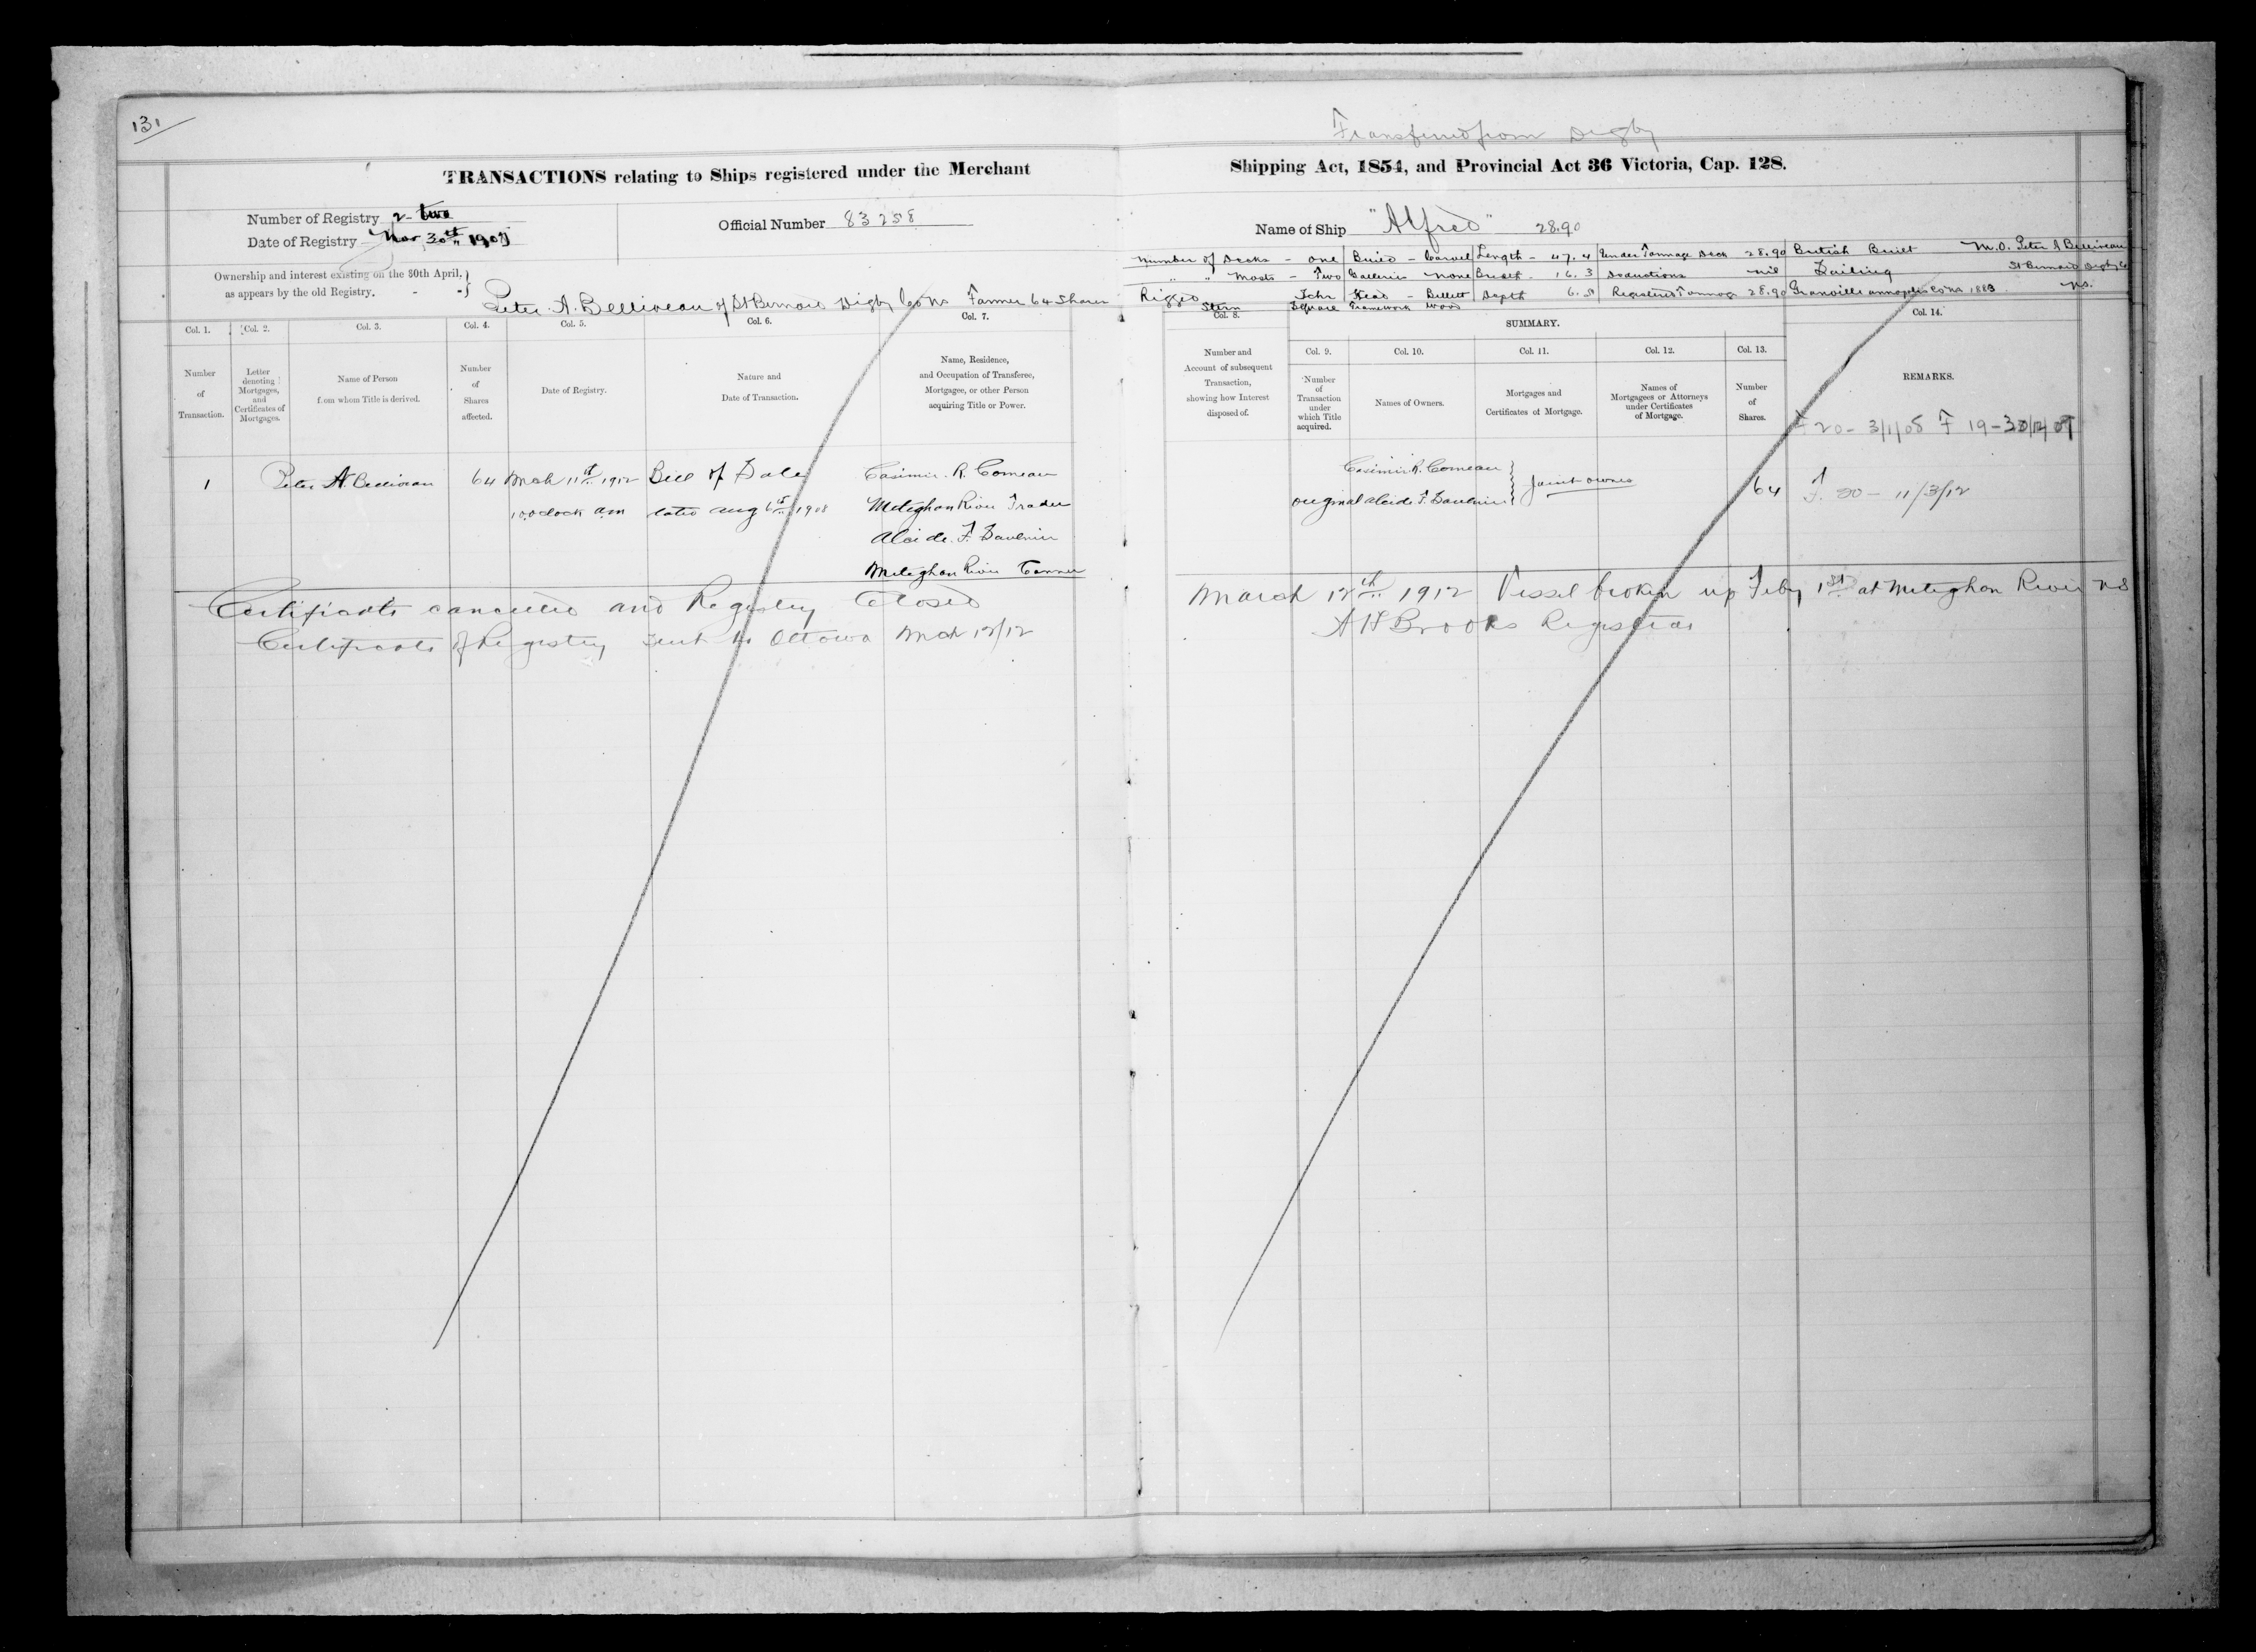 131
Transferred from Digby
TRANSACTIONS relating to Ships registered under the Merchant Shipping Act, 1854, and Provincial Act 36 Victoria, Cap. 128.
Number of Registry 2 - two
Date of Registry Nov 30th 1907
Official Number 83258
Name of Ship "Alfred" 28.90
Ownership and interest existing on the 30th April, as appears by the old Registry. - -}
Peter A. Belliveau of St Bernard Digby Co NS Farmer 64 Shares
Number of Decks - one Build - Carvel Length - 47.4 Under Tonnage Deck 28.90 British Built M.O. Peter A Belliveau
" " Masts - Two Galleries none Breadth - 16.3 Deductions nil Sailing St Bernard Digby Co
Rigged Schr Head - Billett Depth 6.5 Registered Tonnage 28.90 Granville Annapolis Co NS 1883 NS.
Stern Square Framework Wood
Col. 1. Col. 2. Col. 3. Col. 4. Col. 5. Col. 6. Col. 7. Col. 8. SUMMARY. Col. 14.
Col. 9. Col. 10. Col. 11. Col. 12. Col. 13.
Number of Transaction.
Letter denoting Mortgages, and Certificates of Mortgages.
Name of Person from whom Title is derived.
Number of Shares affected.
Date of Registry.
Nature and Date of Transaction.
Name, Residence, and Occupation of Transferee, Mortgagee, or other Person acquiring Title or Power.
Number and Account of subsequent Transaction, showing how Interest disposed of.
Number of Transaction under which Title acquired.
Names of Owners.
Mortgages and Certificates of Mortgage.
Names of Mortgagees or Attorneys under Certificates of Mortgage.
Number of Shares.
REMARKS.
F 20 - 3/1/08 F 19 - 30/12/07
1 Peter A. Belliveau 64 Mch 11th 1912 Bill of Sale Casimir. R. Comeau
10 oclock am dated Aug 6th 1908 Meteghan River Trader
Alcide. F.
Meteghan River Tanner
Casimir R. Comeau } Joint owners 64 F. 20 - 11/3/12
original Alcide F.
Certificate cancelled and Registry Closed March 12th 1912 Vessel broken up Feby 1st at Meteghan River NS
Certificate of Registry sent to Ottawa Mch 12/12 A H Brooks Registrar